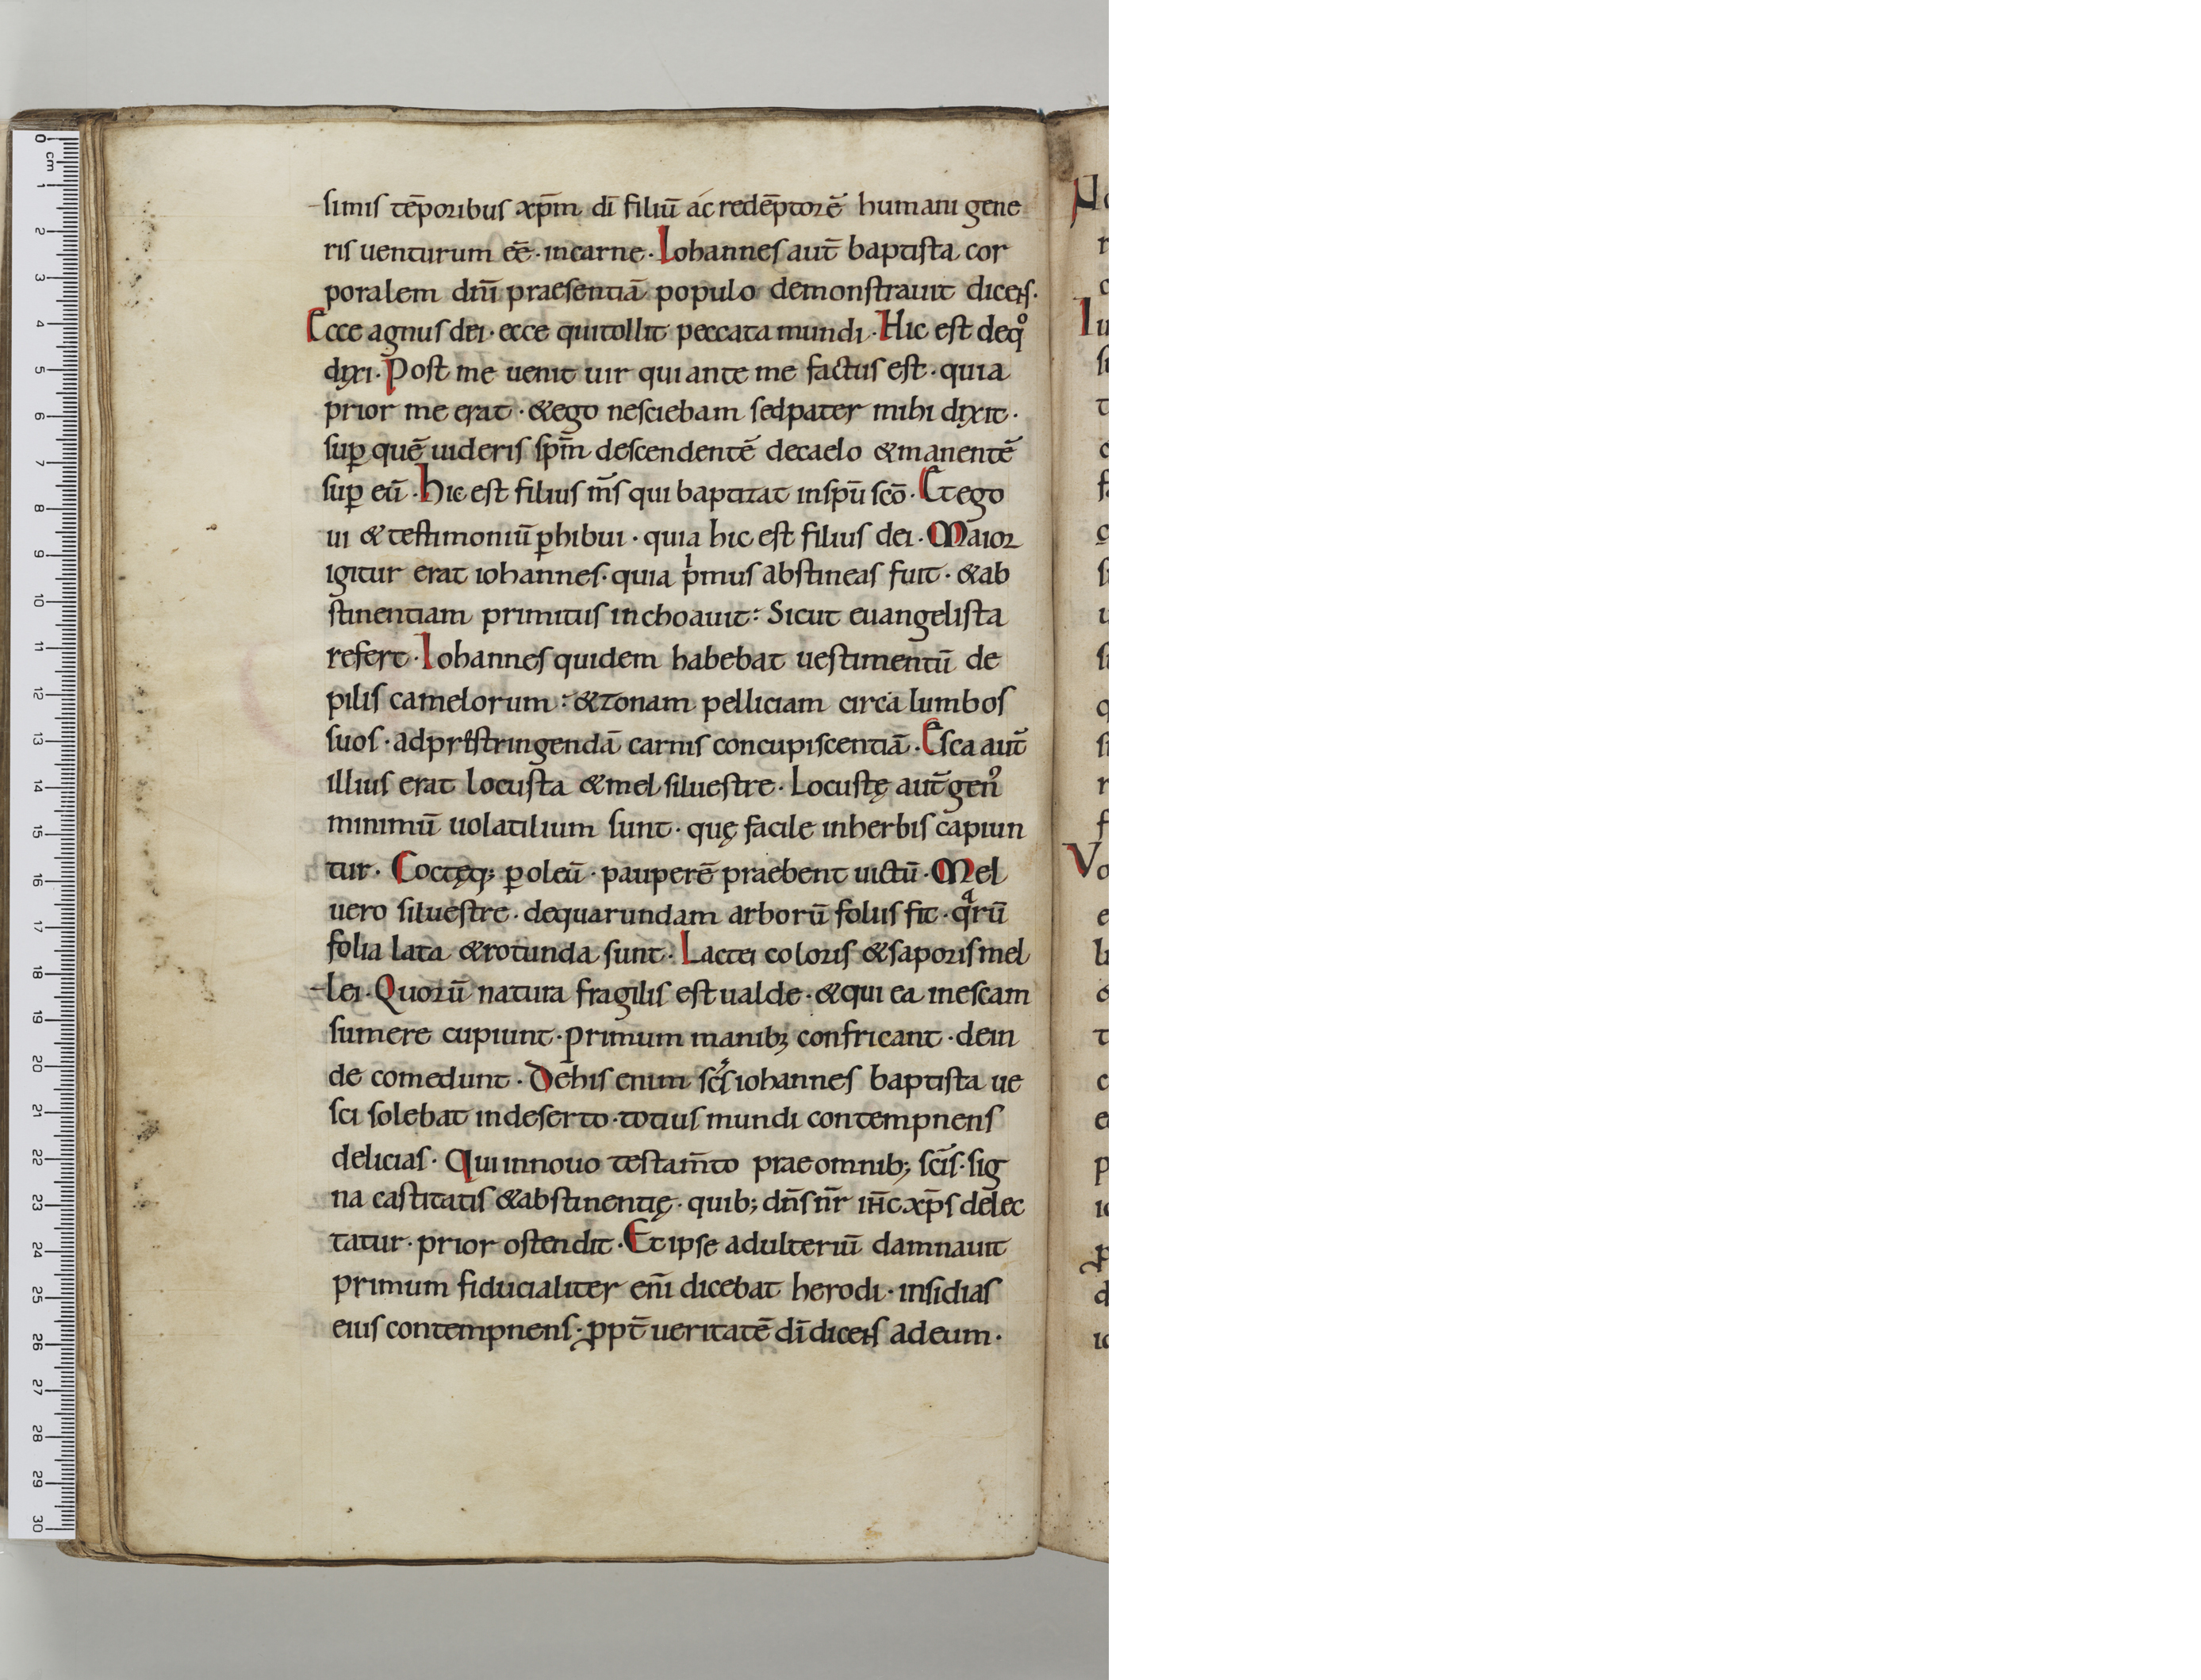 simis tēporibus xp̄m dī filiū ac redēptorē humani gene
ris uenturum eē · incarne · Iohannes aut̄ baptista cor
poralem dnī praesentiā populo demonstrauit dicens ·
Ecce agnus dei · ecce qui tollit peccata mundi · Hic est de qͦ
dixi · Post me uenit uir qui ante me factus est · quia
prior me erat · & ego nesciebam sed pater mihi dixit ·
suꝑ quē uideris spm̄ descendentē de caelo & manentē
suꝑ eū · hic est filius m̄s qui baptizat in spū scō · Et ego
ui & testimoniū ꝑhibui · quia hic est filius dei · Maior
igitur erat iohannes · quia pͥmus abstineas fuit · & ab
stinentiam primitus inchoauit : Sicut euangelista
refert · Iohannes quidem habebat uestimentū de
pilis camelorum : & zonam pelliciam circa lumbos
suos · ad prestringendā carnis concupiscentiā · Esca aut̄
illius erat locusta & mel siluestre · Locustę aut̄ gen᾿
minimū uolatilium sunt · quę facile in herbis capiun
tur · Coctęq; ꝑ oleū · pauperē praebent uictū · Mel
uero siluestre · de quarundam arborū foliis fit · qͣrū
folia lata & rotunda sunt · Lactei coloris & saporis mel
lei · Quorū natura fragilis est ualde · & qui ea in escam
sumere cupiunt · primum manibꝫ confricant · dein
de comedunt · De his enim scs̄ iohannes baptista ue
sci solebat in deserto · totius mundi contempnens
delicias · Qui in nouo testam̄to prae omnib; scīs · sig
na castitatis & abstinentię · quib; dn̄s nr̄ ih̄c xp̄s delec
tatur · prior ostendit · Et ipse adulteriū damnauit
primum fiducialiter enī dicebat herodi · insidias
eius contempnens · ꝓpt̄ ueritatē dī dicens ad eum ·